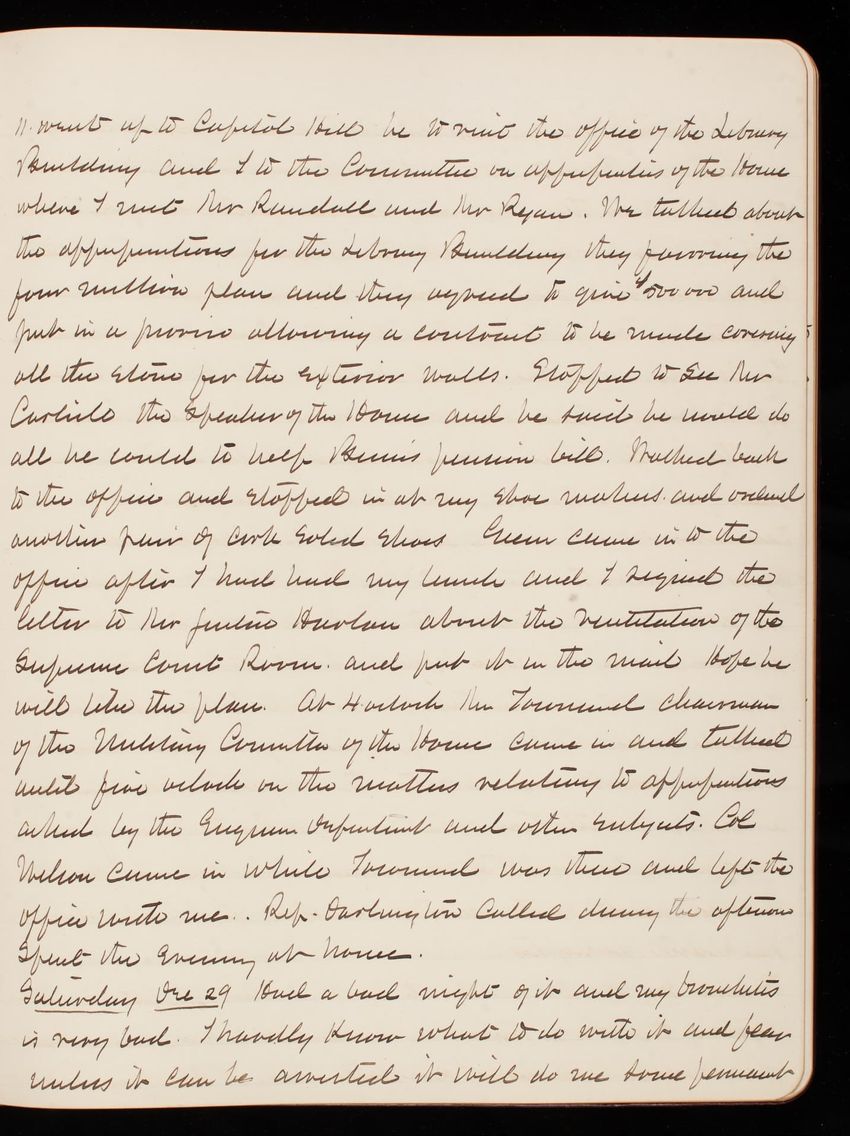 went up to Capitol Hill he to visit the office of the Library
Building and I to the Committee on appropriations of the House
where I met Mr Randall and Mr Ryan. We talked about
the appropriations for the Library Building they favoring the
four million plan and they agreed to give $500 000 and
put in a proviso allowing a contract to be made covering
all the stone for the exterior walls. Stopped to see Mr
Carlisle the Speaker of the House and he said he would do
all he could to help pension bill. Walked back
to the office and stopped in at my shoe makers and ordered
another pair of cork soled shoes Green came in to the
office after I had had my lunch and I signed the
letter to Mr Justice Harlan about the ventilation of the
Supreme Court Room. and put it in the mail Hope he
will like the plan. At 4 oclock Mr Townsend chairman
of the Military Committee of the House came in and talked
until five oclock on the matters relating to appropriations
asked by the Engineer Department and other subjects. Col
Wilson came in while Townsend was there and left the
office with me.. Rep. Darlington called during the afternoon
Spent the Evening at home.
Saturday Dec 29 Had a bad night of it and my bronchitis
is very bad. I hardly know what to do with it and fear
unless it can be arrested it will do me some permanent